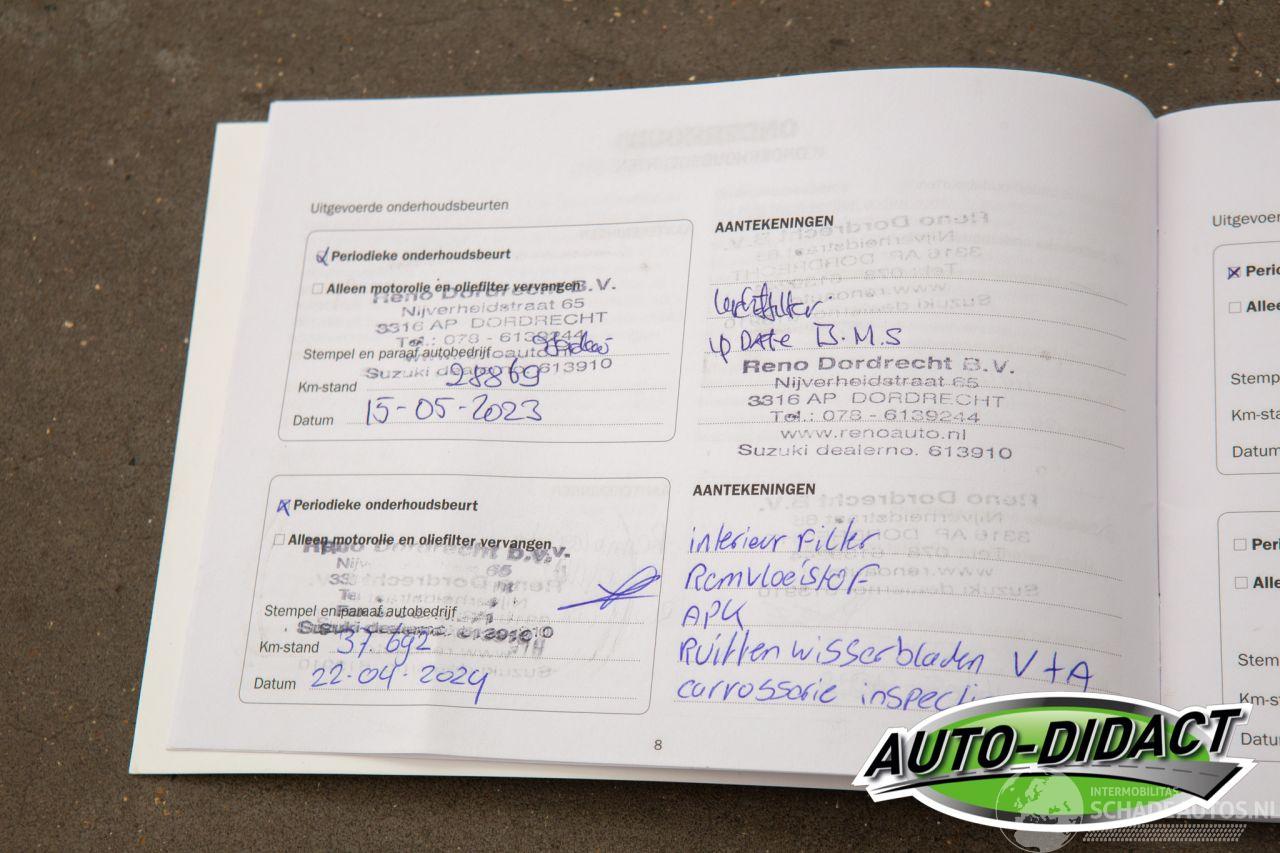 Uitgevoerde onderhoudsbeurten
Periodieke onderhoudsbeurt
Alleen motorolie en oliefilter vervangen
Reno Dordrecht B.V.
Nijverheidstraat 65
3316 AP DORDRECHT
Tel.: 078 - 6139244
Stempel en paraaf autobedrijf
Suzuki dealerno. 613910
Km-stand 28869
Datum 15-05-2023
AANTEKENINGEN
Luchtfilter
UpDate B.M.S
Reno Dordrecht B.V.
Nijverheidstraat 65
3316 AP DORDRECHT
Tel.: 078 - 6139244
www.renoauto.nl
Suzuki dealerno. 613910
Periodieke onderhoudsbeurt
Alleen motorolie en oliefilter vervangen
Reno Dordrecht B.V.
Stempel en paraaf autobedrijf
Suzuki dealerno. 613910
Km-stand 37.692
Datum 22-04-2024
AANTEKENINGEN
interieur Filter
Remvloeistof
APK
Ruitten wisserbladen V+A
carrosserie inspecti
8
Uitgevoer
Perio
Allee
Stemp
Km-sta
Datum
Peri
Alle
Stem
Km-s
Datu
AUTO-DIDACT
INTERMOBILITAS
SCHADEAUTOS.NL